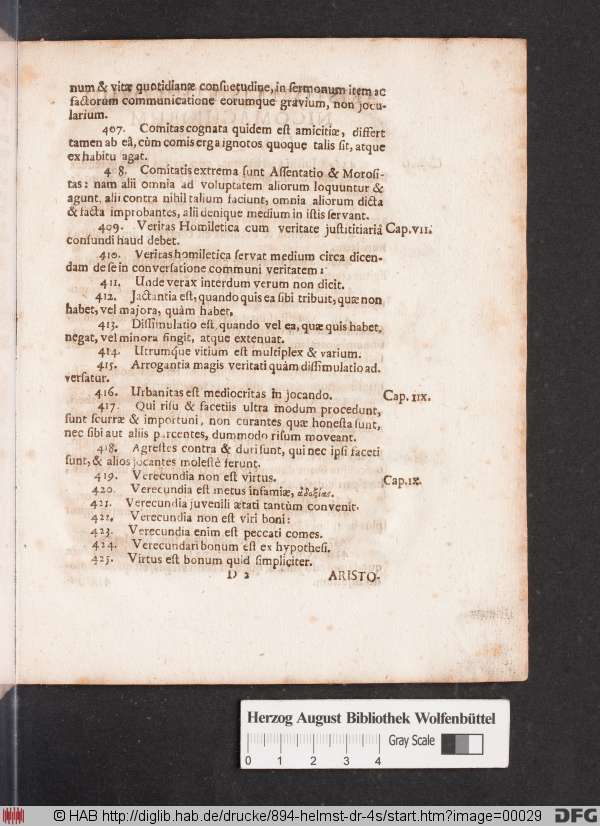 num & vitæ quotidianæ conſuetudine, in ſermonum item ac
factorum communicatione eorumque gravium, non jocu-
larium.
407. Comitas cognata quidem eſt amicitiæ, differt
tamen ab eâ, cùm comis erga ignotos quoque talis ſit, atque
ex habitu agat.
408. Comitatis extrema ſunt Aſſentatio & Moroſi-
tas: nam alii omnia ad voluptatem aliorum loquuntur &
agunt, alii contra nihil talium faciunt, omnia aliorum dicta
& facta improbantes, alii denique medium in iſtis ſervant.
409. Veritas Homiletica cum veritate juſtititiariâ Cap. VII.
confundi haud debet.
410. Veritas homiletica ſervat medium circa dicen-
dam de ſe in converſatione communi veritatem:
411. Unde verax interdum verum non dicit.
412. Jactantia eſt, quando quis ea ſibi tribuit, quæ non
habet, vel majora, quàm habet,
413. Diſſimulatio eſt, quando vel ea, quæ quis habet,
negat, vel minora fingit, atque extenuat.
414. Utrumque vitium eſt multiplex & varium.
415. Arrogantia magis veritati quàm diſſimulatio ad-
verſatur.
416. Urbanitas eſt mediocritas in jocando. Cap. IIX.
417. Qui riſu & facetiis ultra modum procedunt,
ſunt ſcurræ & importuni, non curantes quæ honeſta ſunt,
nec ſibi aut aliis parcentes, dummodo riſum moveant.
418. Agreſtes contra & duri ſunt, qui nec ipſi faceti
ſunt, & alios jocantes moleſtè ferunt.
419. Verecundia non eſt virtus. Cap. IX.
420. Verecundia eſt metus infamiæ, ἀδοξίας.
421. Verecundia juvenili ætati tantùm convenit.
422. Verecundia non eſt viri boni:
423. Verecundia enim eſt peccati comes.
424. Verecundari bonum eſt ex hypotheſi.
425. Virtus eſt bonum quid ſimpliciter.
D 2 ARISTO-
Herzog August Bibliothek Wolfenbüttel
Gray Scale
0 1 2 3 4
© HAB http://diglib.hab.de/drucke/894-helmst-dr-4s/start.htm?image=00029
DFG